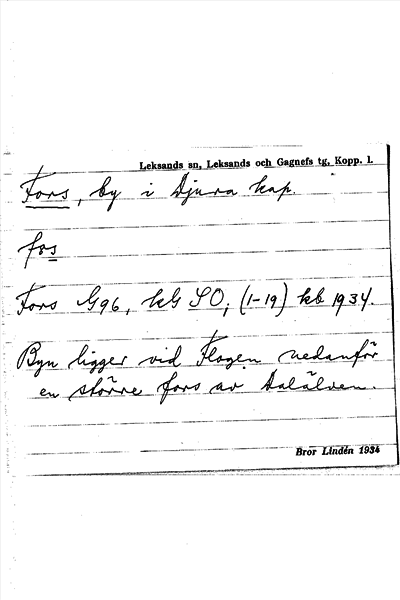 Leksands sn, Leksands och Gagnefs tg, Kopp. l.
Fors, by i Djura kap.
fos
Fors G96, kG SO; (1-19) kb 1934.
Byn ligger vid Flogen nedanför
en större fors av Dalälven.
Bror Lindén 1934